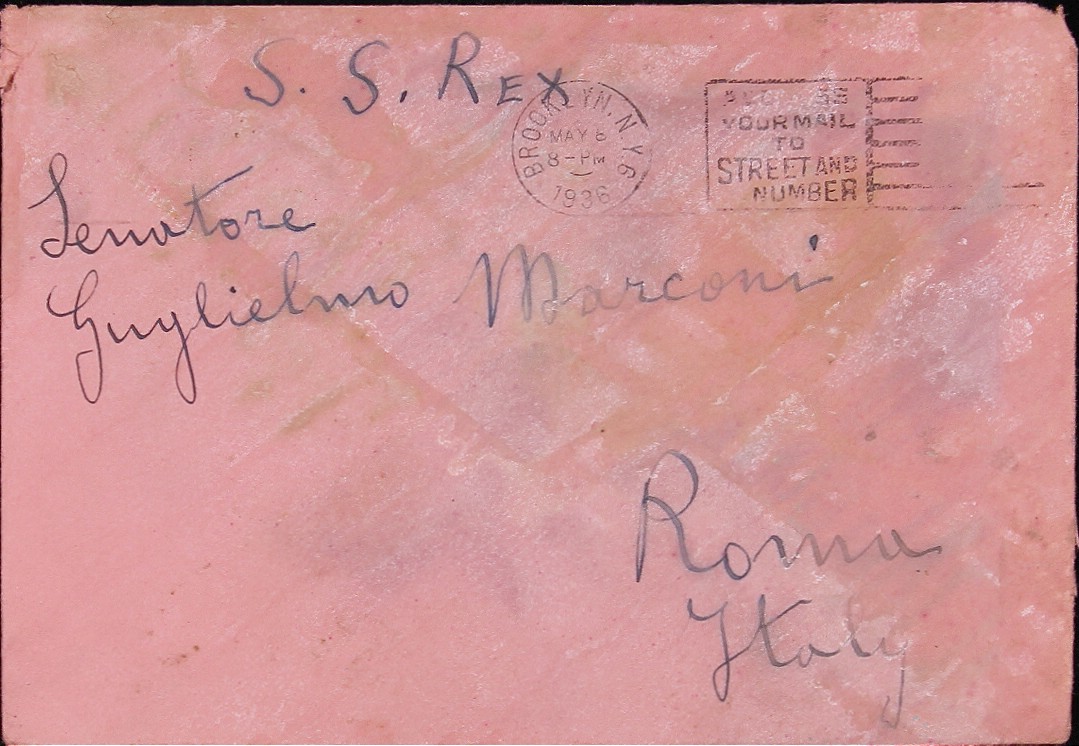 S. S. REX
BROOKLYN, N.Y. 6
MAY 6
8-PM
1936
YOUR MAIL
TO
STREET AND
NUMBER
Senatore
Guglielmo Marconi
Roma
Italy